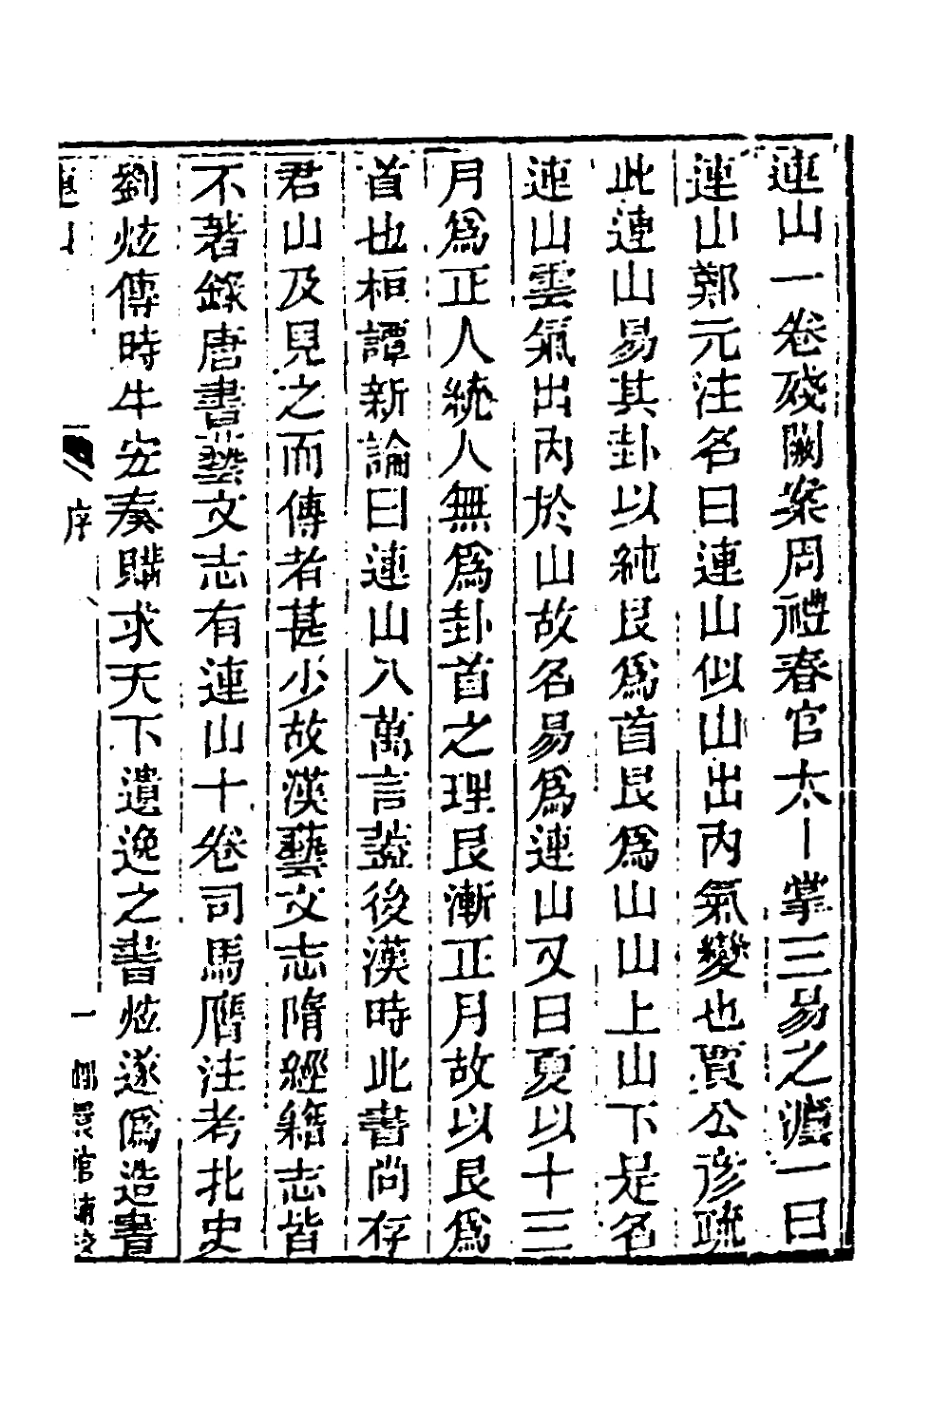 連山一卷殘闕案周禮春官太卜掌三易之灋一曰
連山鄭元注名曰連山似山出內氣變也賈公彥疏
此連山易其卦以純艮爲首艮爲山山上山下是名
連山雲氣出內於山故名易爲連山又曰夏以十三
月爲正人統人無爲卦首之理艮漸正月故以艮爲
首也桓譚新論曰連山八萬言葢後漢時此書尚存
君山及見之而傳者甚少故漢藝文志隋經籍志皆
不著錄唐書藝文志有連山十卷司馬膺注考北史
劉炫傳時牛宏奏購求天下遺逸之書炫遂偽造書
連山
序
一
嬛館補校